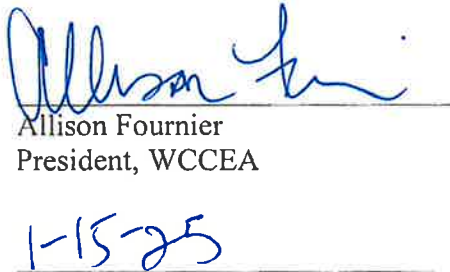 Allison Fournier
Allison Fournier
President, WCCEA
1-15-25